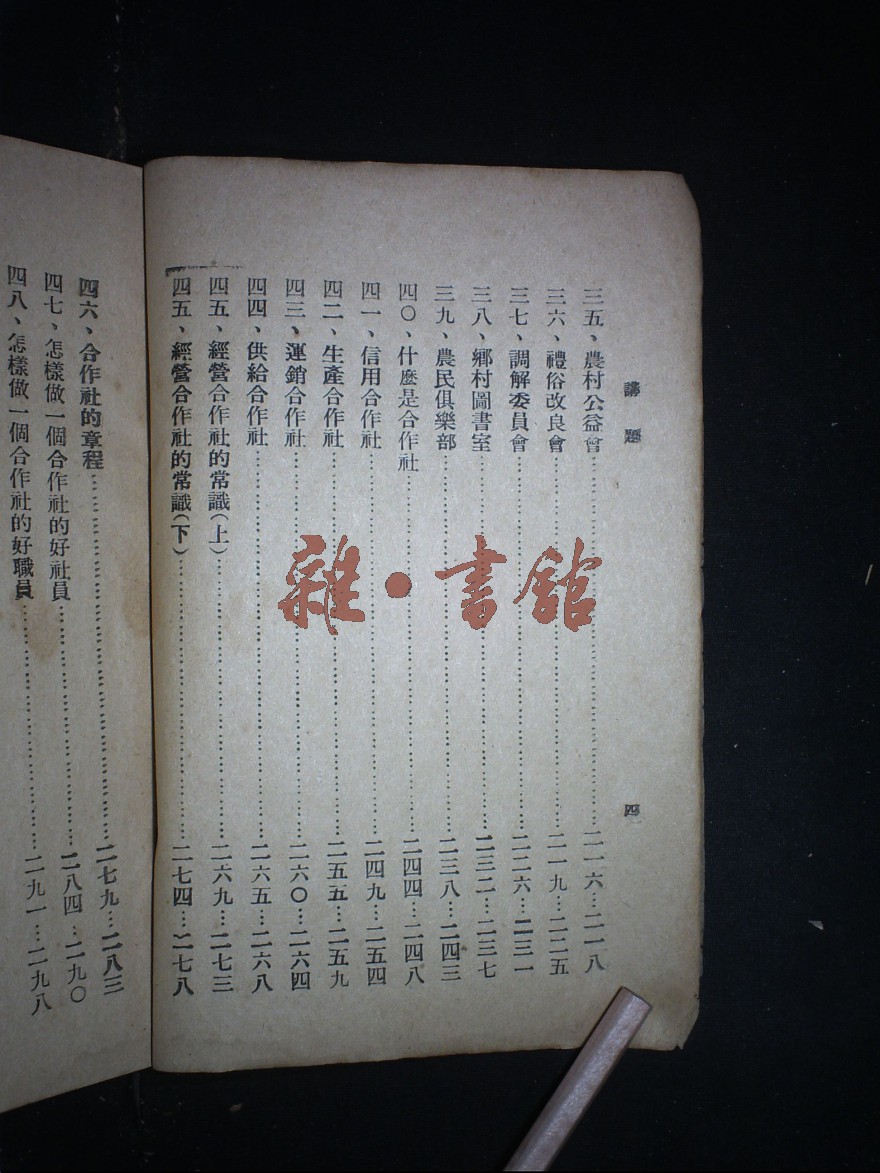 講題
四
三五、農村公益會……二一六…二一八
三六、禮俗改良會……二一九…二二五
三七、調解委員會……二二六…二三一
三八、鄉村圖書室……二三二…二三七
三九、農民俱樂部……二三八…二四三
四〇、什麼是合作社……二四四…二四八
四一、信用合作社……二四九…二五四
四二、生產合作社……二五五…二五九
四三、運銷合作社……二六〇…二六四
四四、供給合作社……二六五…二六八
四五、經營合作社的常識(上)……二六九…二七三
四五、經營合作社的常識(下)……二七四…二七八
四六、合作社的章程……二七九…二八三
四七、怎樣做一個合作社的好社員……二八四…二九〇
四八、怎樣做一個合作社的好職員……二九一…二九八
雜·書館